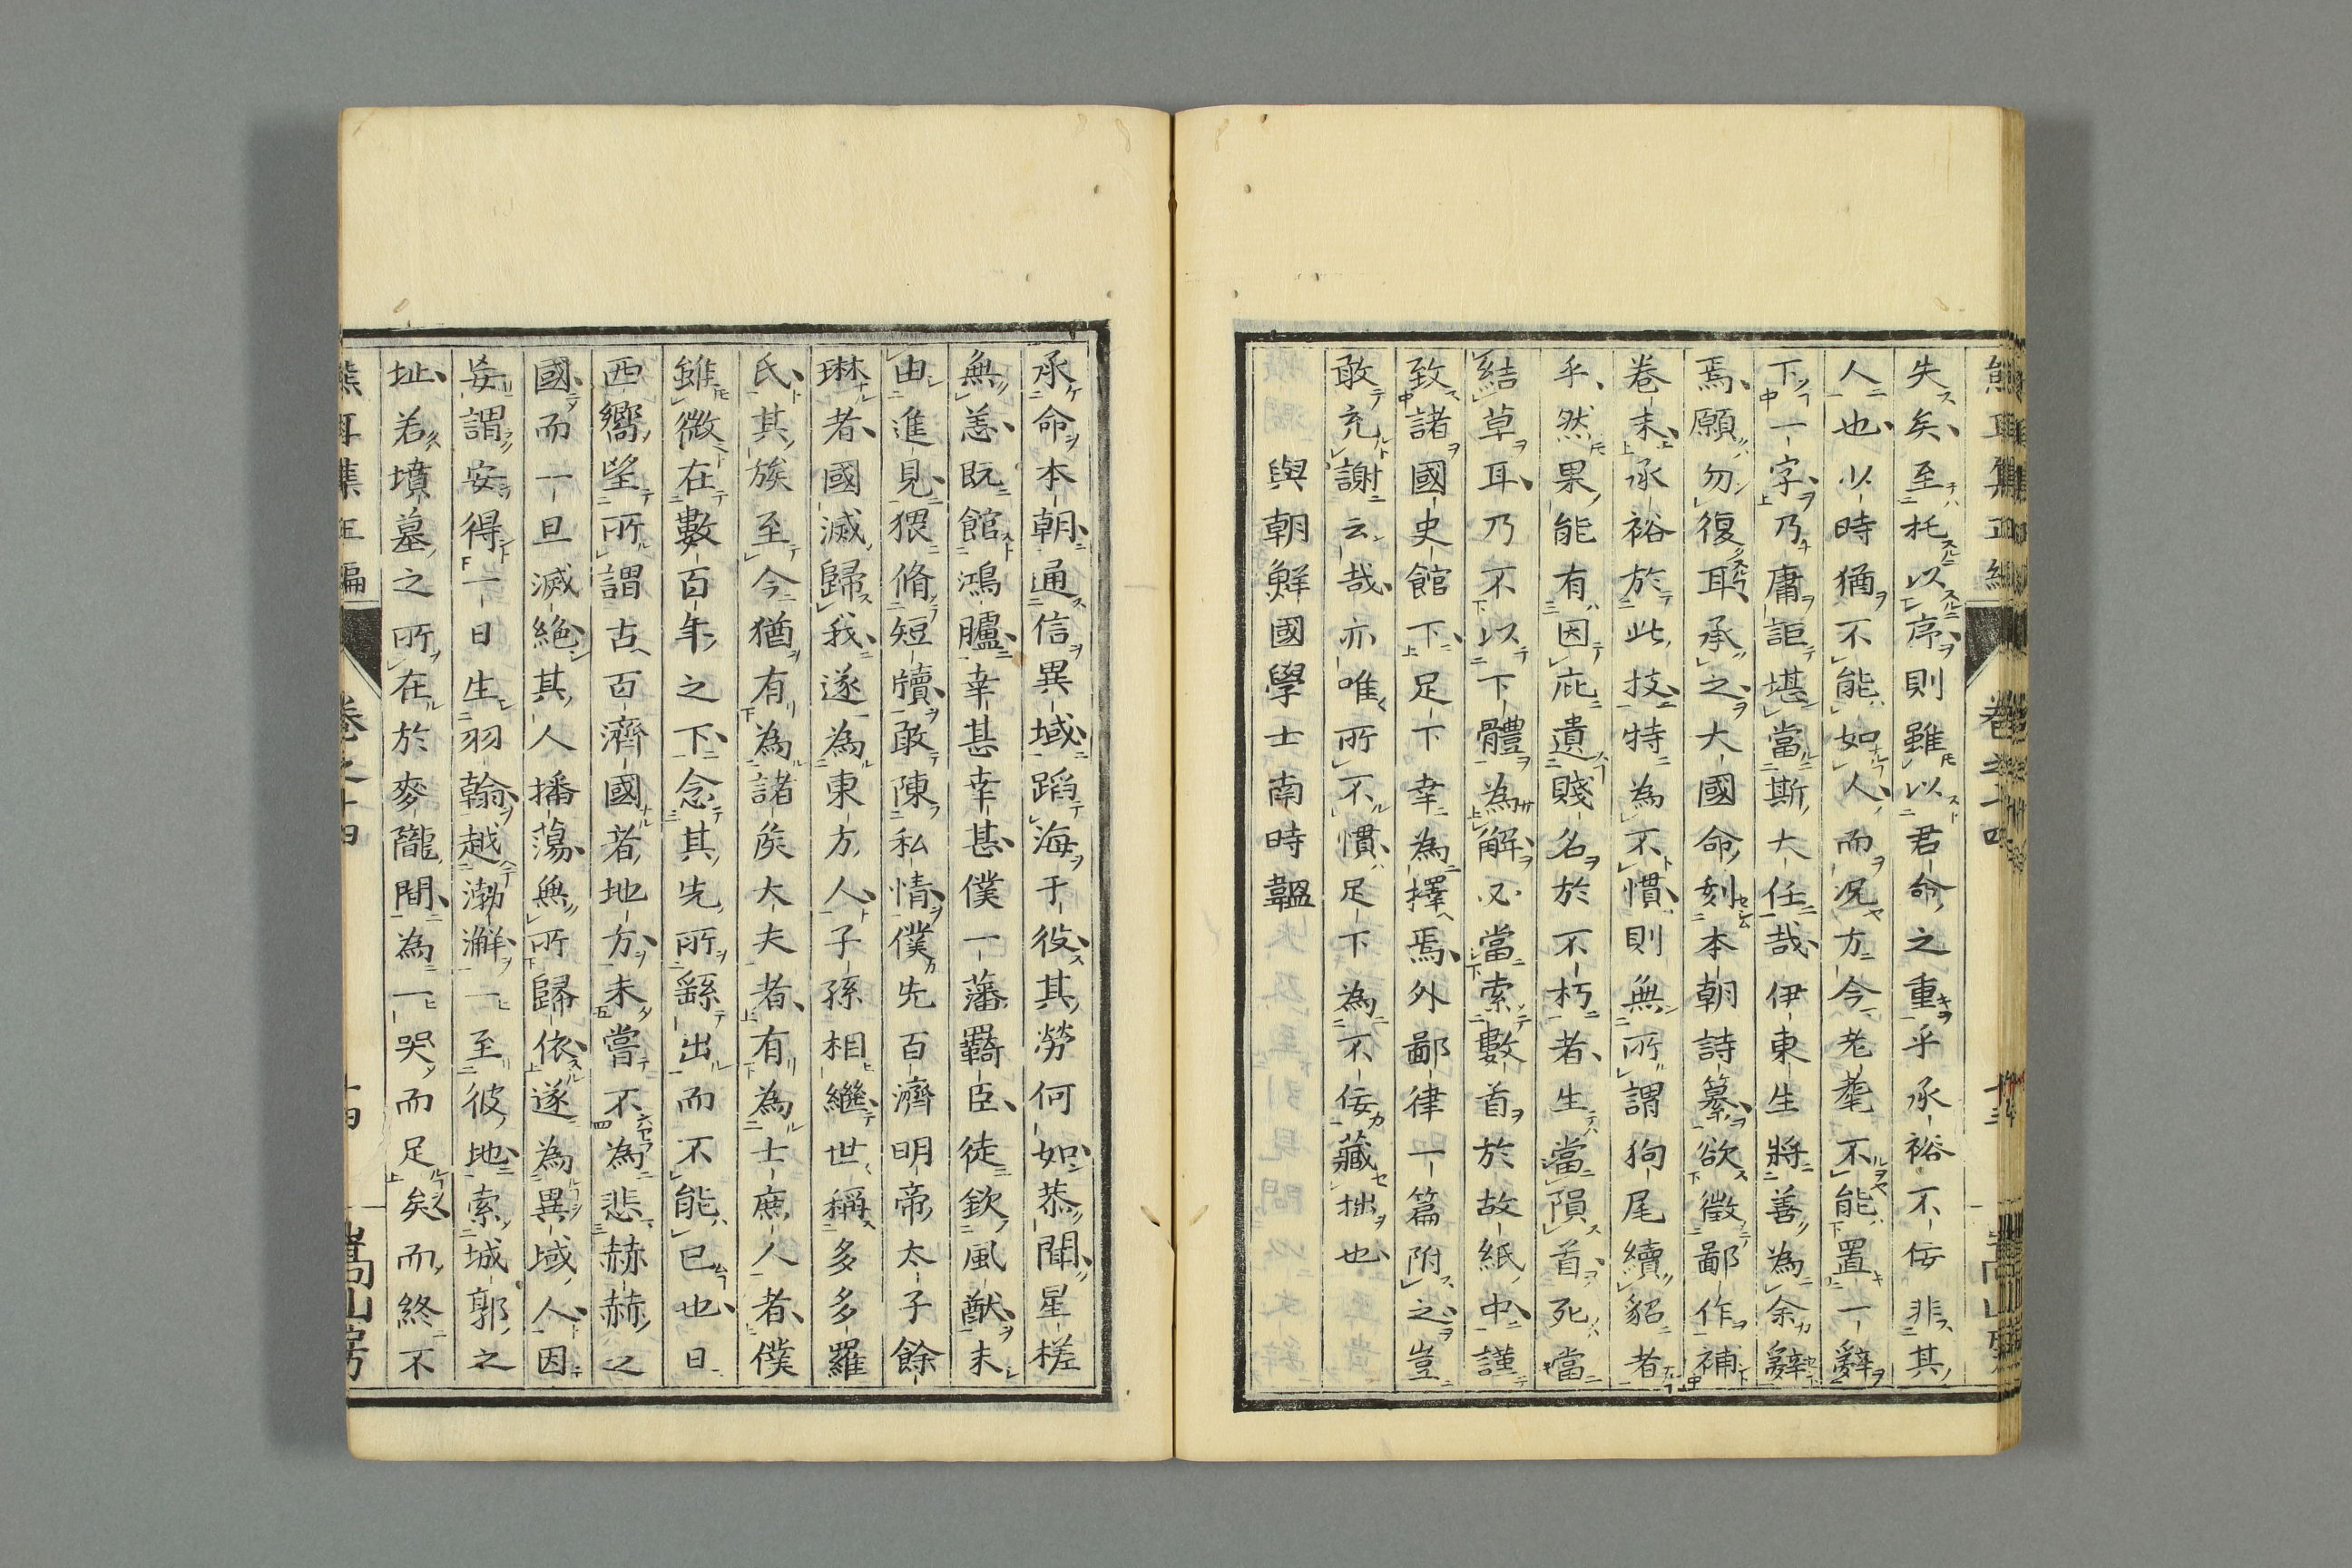 失矣至托以序則雖以君命之重乎承裕不佞非其
人也以時猶不能如人而况方今老耄不能置一辭
下一字乃庸詎堪當斯大任哉伊東生將善為余辭
焉願勿復取承之大國命刻本朝詩纂欲徵鄙作補
卷末承裕於此技特為不慣則無所謂狗尾續貂者
乎然果能有因庇遺賤名於不朽者生當隕首死當
結草耳乃不以下體為解必當索數首於故紙中謹
致諸國史館下足下幸為擇焉外鄙律一篇附之豈
敢充謝云哉亦唯所不慣足下為不佞藏拙也
與朝鮮國學士南時韞
承命本朝通信異域蹈海于役其勞何如恭聞星槎
無恙既館鴻臚幸甚幸甚僕一藩羈臣徒欽風猷未
由進見猥脩短牘敢陳私情僕先百濟明帝太子餘
琳者國滅歸我遂為東方人子孫相繼世稱多多羅
氏其族至今猶有為諸侯大夫者有為士庶人者僕
雖微在數百年之下念其先所繇出而不能已也日
西嚮望所謂古百濟國者地方未嘗不為悲赫赫之
國而一旦滅絕其人播蕩無所歸依遂為異域人因
妄謂安得一日生羽翰越渤澥一至彼地索城郭之
址若墳墓之所在於麥隴間為一哭而足矣而終不
卷之十四
嵩山房